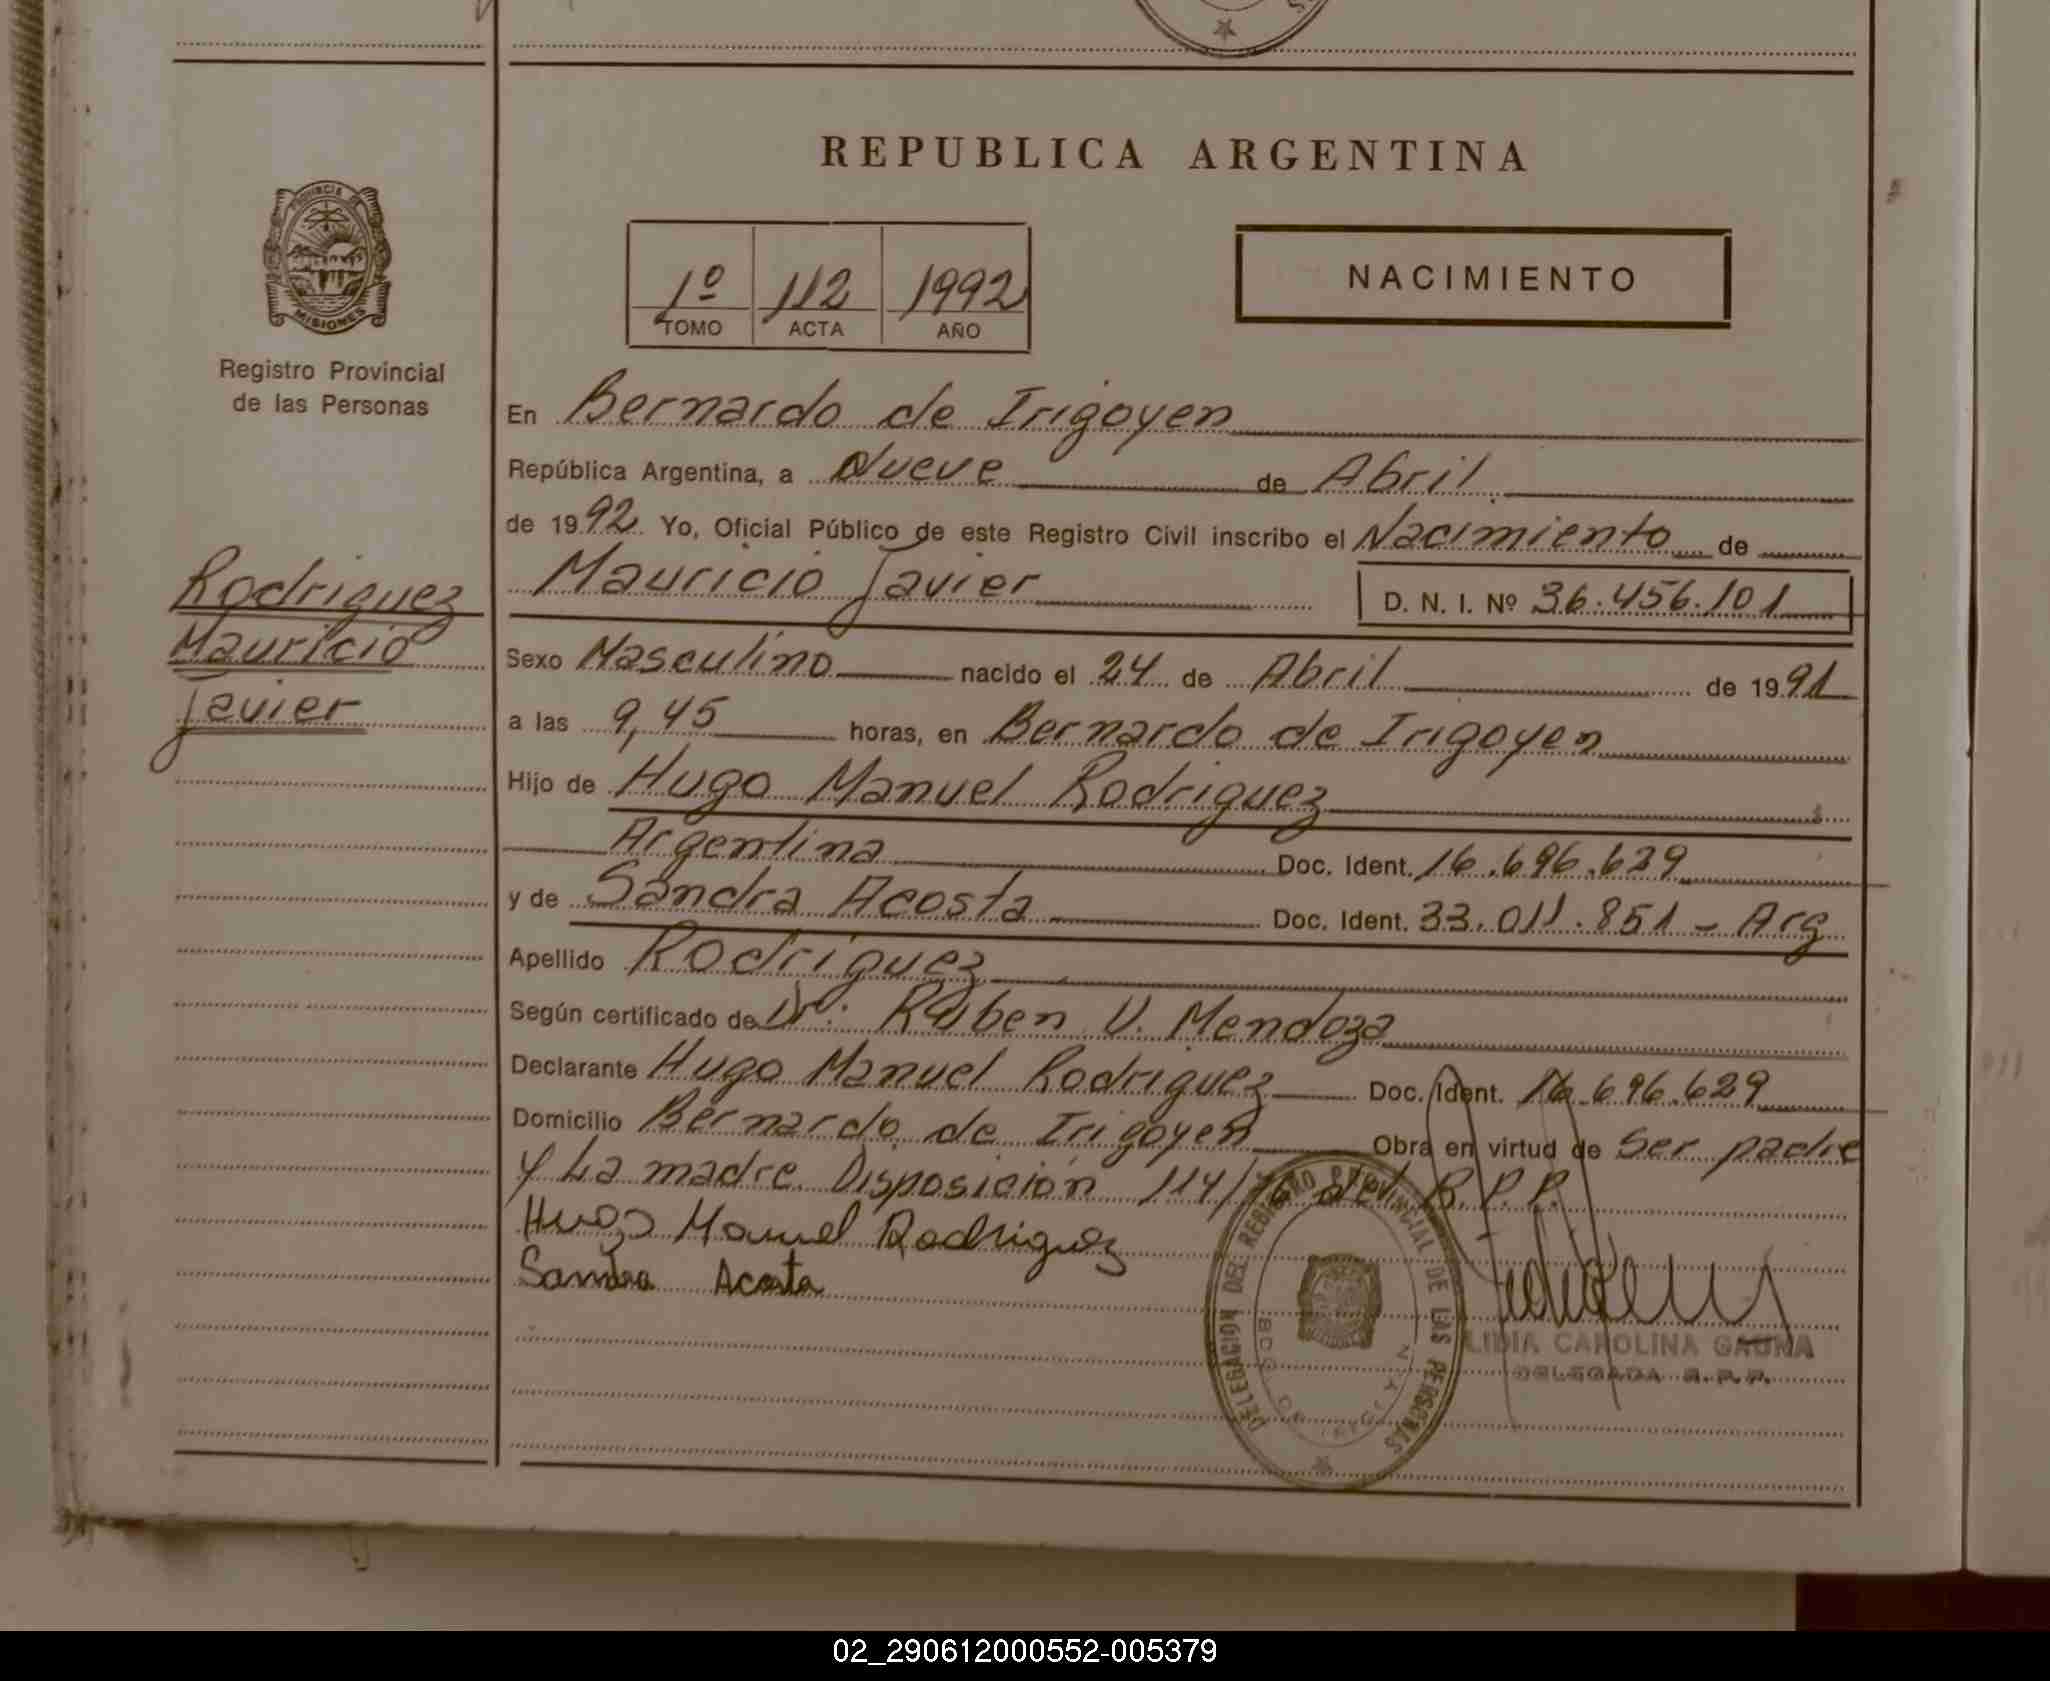 REPUBLICA ARGENTINA
PROVINCIA DE
MISIONES
Registro Provincial
de las Personas
1º 112 1992
TOMO ACTA AÑO
NACIMIENTO
Rodriguez
Mauricio
Javier
En Bernardo de Irigoyen
República Argentina, a Nueve de Abril
de 1992 Yo, Oficial Público de este Registro Civil inscribo el Nacimiento de
Mauricio Javier D. N. I. Nº 36.456.101
Sexo Masculino nacido el 24 de Abril de 1991
a las 9,45 horas, en Bernardo de Irigoyen
Hijo de Hugo Manuel Rodriguez
Argentina Doc. Ident. 16.696.629
y de Sandra Acosta Doc. Ident. 33.011.851 - Arg
Apellido Rodriguez
Según certificado de Dr. Ruben V. Mendoza
Declarante Hugo Manuel Rodriguez Doc. Ident. 16.696.629
Domicilio Bernardo de Irigoyen Obra en virtud de Ser padre
y La madre. Disposición 114/76 del R.P.P.
Hugo Manuel Rodriguez
Sandra Acosta
DELEGACION DEL REGISTRO PROVINCIAL DE LAS PERSONAS
LIDIA CAROLINA GAUNA
DELEGADA R.P.P.
02_290612000552-005379